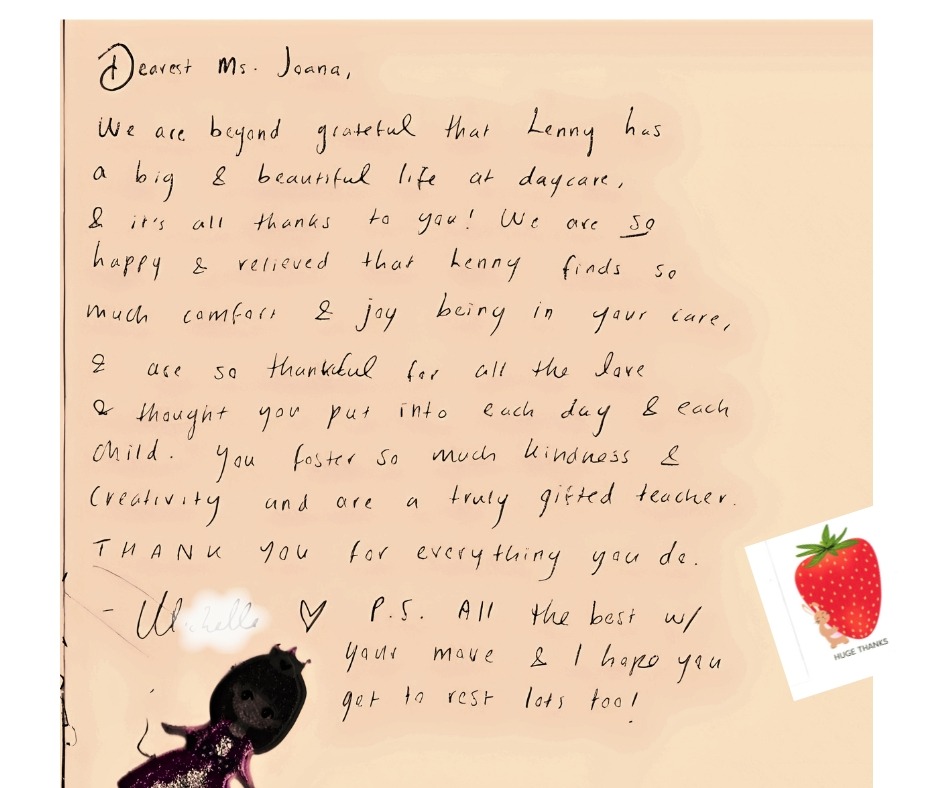 Dearest Ms. Joana,
We are beyond grateful that Lenny has
a big & beautiful life at daycare,
& it's all thanks to you! We are so
happy & relieved that Lenny finds so
much comfort & joy being in your care,
& are so thankful for all the love
& thought you put into each day & each
child. You foster so much kindness &
creativity and are a truly gifted teacher.
THANK YOU for everything you do.
- ♡
P.S. All the best w/
your move & I hope you
get to rest lots too!
HUGE THANKS